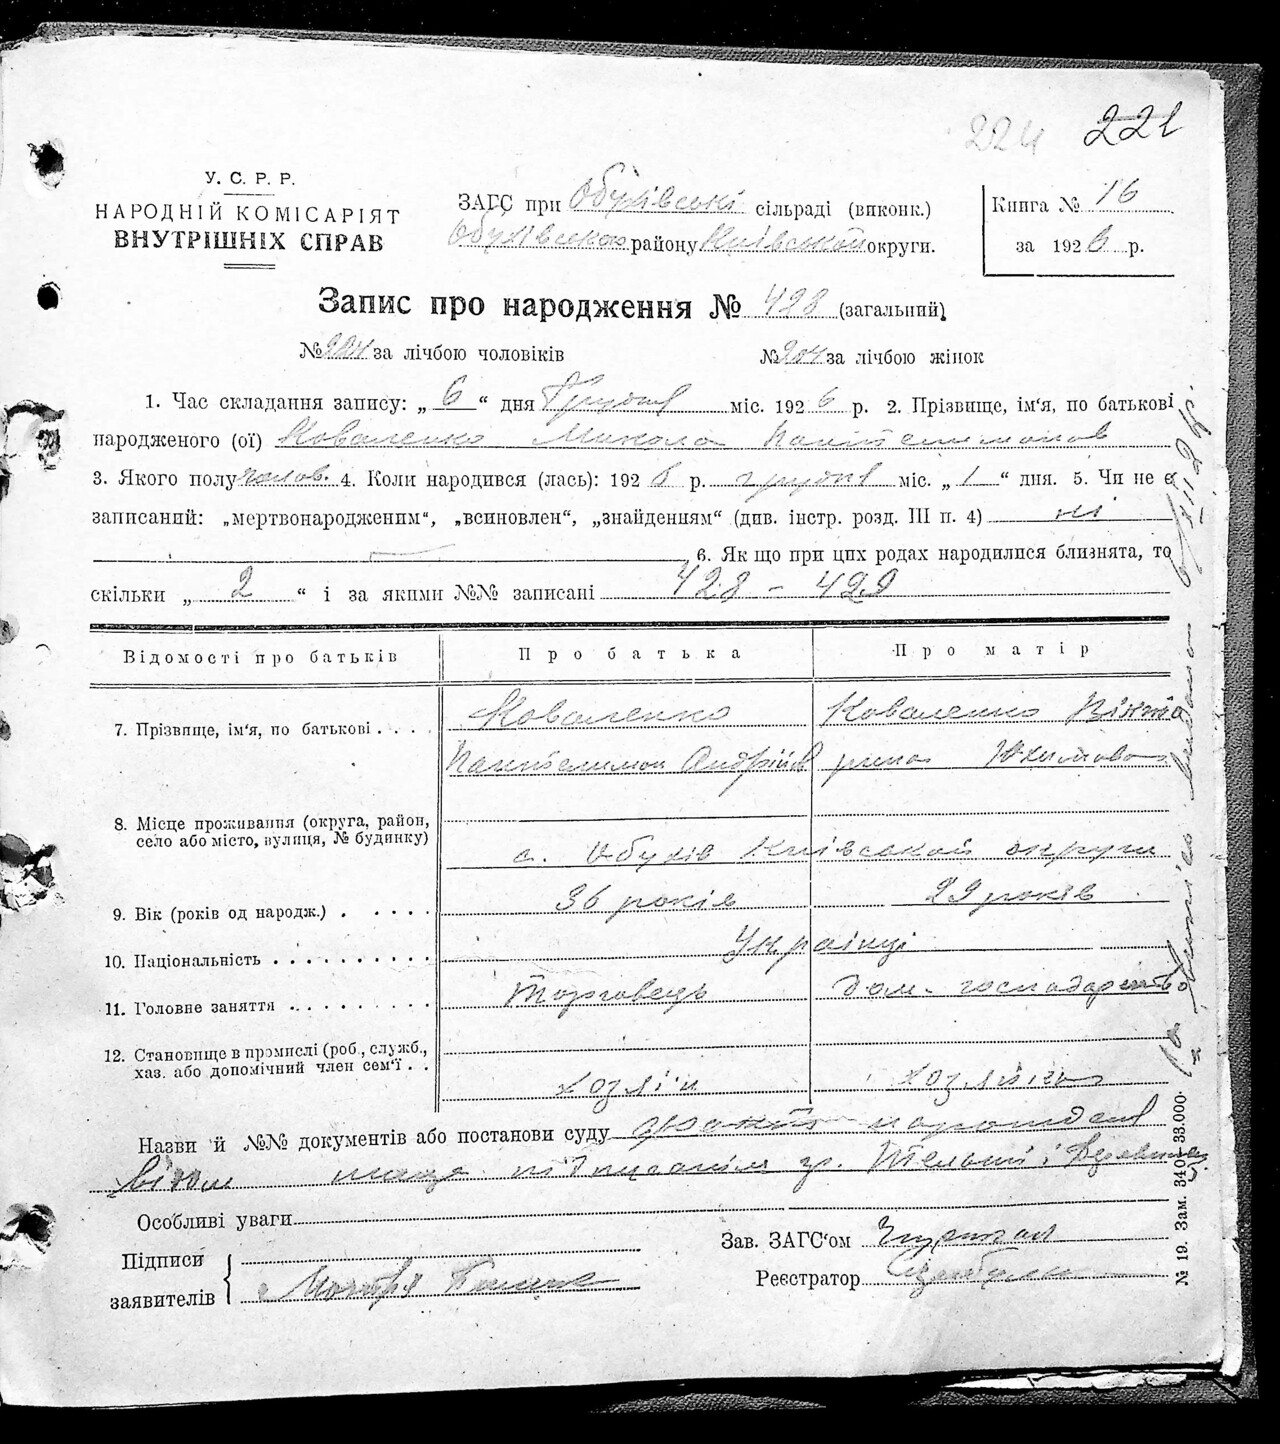 224 221
У. С. Р. Р.
НАРОДНІЙ КОМІСАРІЯТ
ВНУТРІШНІХ СПРАВ
ЗАГС при Обухівські сільраді (виконк.)
Обухівського району Київської округи.
Книга № 16
за 1926 р.
Запис про народження № 428 (загальний)
№ 224 за лічбою чоловіків № 204 за лічбою жінок
1. Час складання запису: „ 6 “ дня Грудня міс. 1926 р. 2. Прізвище, ім'я, по батькові
народженого (ої) Коваленко Микола Пантелимонов
3. Якого полу чолов. 4. Коли народився (лась): 1926 р. грудня міс. „ 1 “ дня. 5. Чи не є
записаний: „мертвонародженим“, „всиновлен“, „знайденням“ (див. інстр. розд. III п. 4) ні
6. Як що при цих родах народилися близнята, то
скільки „ 2 “ і за якими №№ записані 428 - 429
Відомості про батьків Про батька Про матір
7. Прізвище, ім'я, по батькові . . . . Коваленко Коваленко
Пантелимон Андріїв Юхимова
8. Місце проживання (округа, район,
село або місто, вулиця, № будинку)
с. Обухів Київської округи
9. Вік (років од народж.) . . . . . 36 років 29 років
10. Національність . . . . . . . . . . Українці
11. Головне заняття . . . . . . . . . Торговець дом. господарство
12. Становище в промислі (роб., служб.,
хаз. або допомічний член сем'ї . .
хозяїн хозяйка
Назви й №№ документів або постанови суду факт народжен
гр.
Особливі уваги
Підписи
заявителів
Зав. ЗАГС'ом
Реєстратор
№ 19. Зам. 340—33.000.